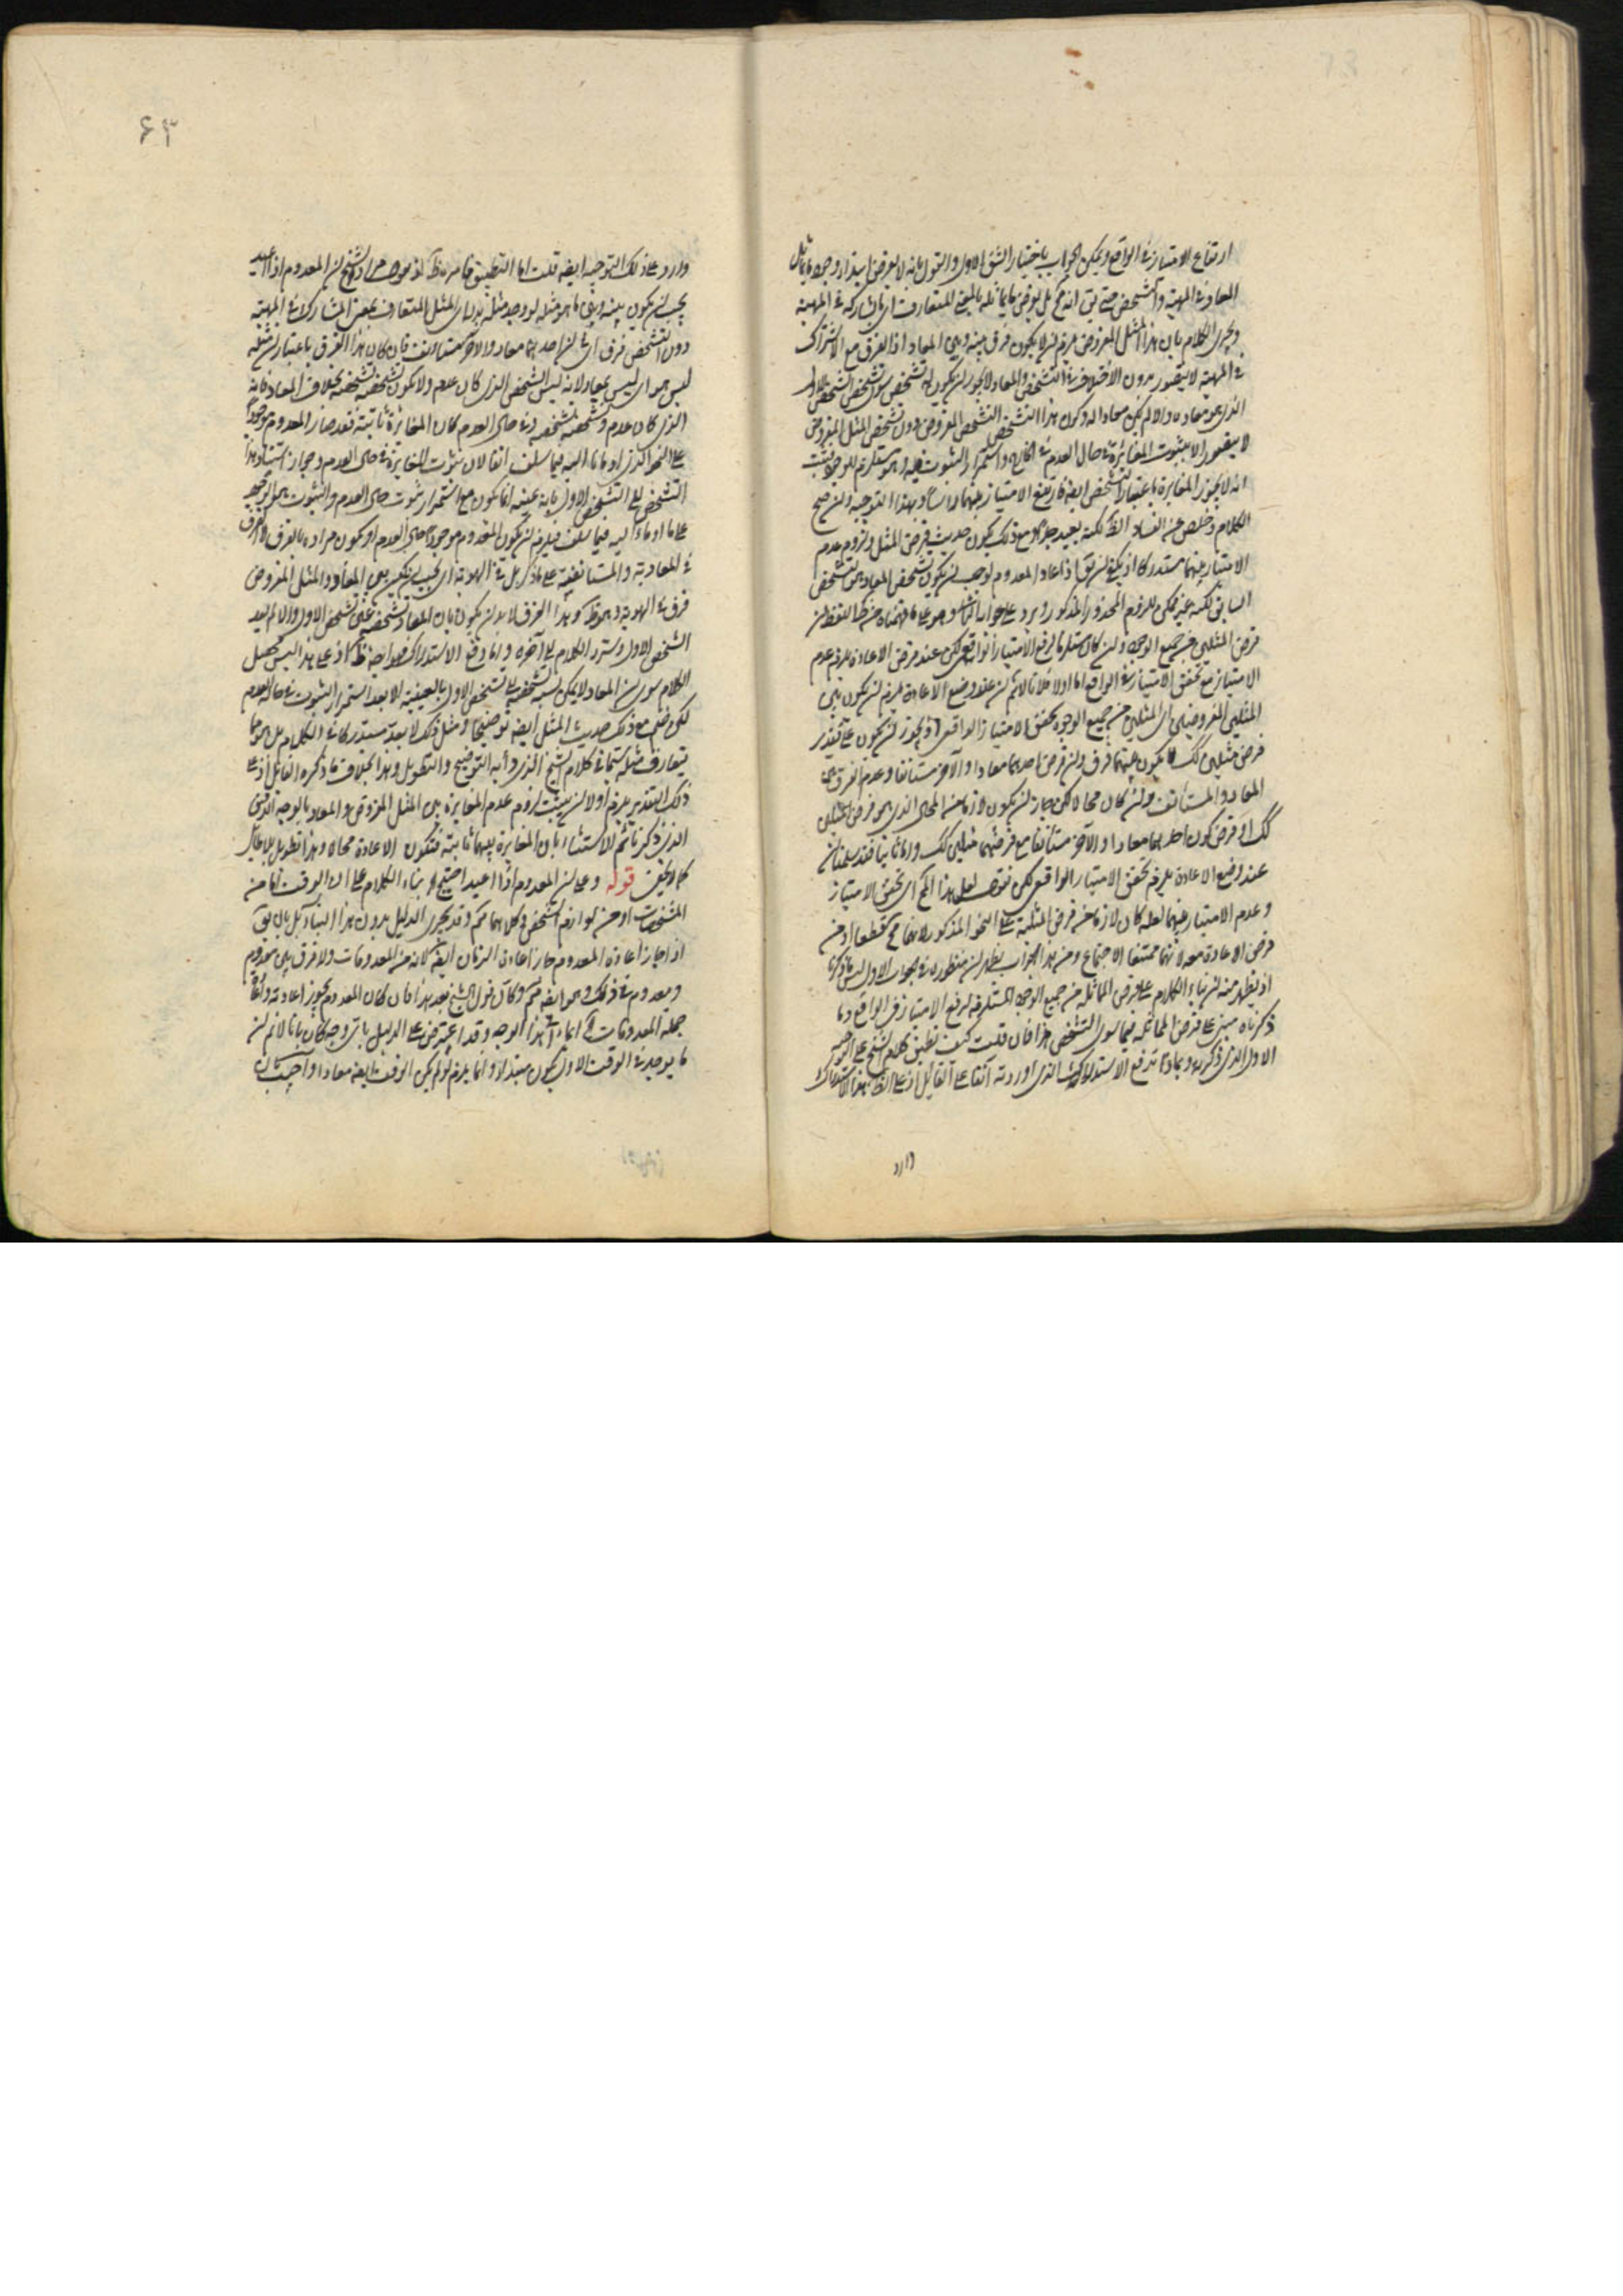 ارتفاع الامتياز فى الواقع ويمكن الجواب باختيار الشق الاول والقول بانه لا يفرض ابتداء وجود ما يماثل
المعاد فى المهية والتشخص حتى يق انه مح بل يفرض ما يماثله بالمعنى المتعارف اى ما يشاركه فى المهية
ويجرى الكلام بان هذا المثل المفروض يلزم ان لا يكون فرق بينه وبين المعاد اذ الفرق مع الاشتراك
فى المهية لا يتصور بدون الاختلاف فى التشخص والمعاد لا يجوز ان يكون له تشخص سوى تشخص الشخص الاول
الذى هو معاده والا لم يكن معادا له وكون هذا التشخص التشخص المفروض دون تشخص المثل المفروض
لا يتصور الا بثبوت المغايرة فى حال العدم فى الخارج واستمرار الثبوت فيه وهو مستلزم للوجود فثبت
انه لا يجوز المغايرة باعتبار التشخص ايضا فارتفع الامتياز بينهما راسا وبهذا التوجيه وان صح
الكلام وخلص عن الفساد الا لكنه بعيد جدا ومع ذلك يكون حديث فرض المثل ولزوم عدم
الامتياز بينهما مستدركا اذ يكفى ان يق اذا عاد المعدوم لوجب ان يكون تشخص المعاد هو تشخص
السابق لكنه غير ممكن للزوم المحذور المذكور ويرد على جوابه الثانى وهو على ما فهمناه من ظ اللفظ ان
فرض المثلين من جميع الوجوه وان كان مستلزما لرفع الامتياز الواقعى لكن عند فرض الاعادة يلزم عدم
الامتياز مع تحقق الامتياز فى الواقع اما اولا فلانا لانم ان عند وضع الاعادة يلزم ان يكون بين
المثلين المفروضين اى المثلين من جميع الوجوه تحقق الامتياز الواقعى اذ يجوز ان يكون على تقدير
فرض مثلين كك لا يكون بينهما فرق وان فرض احدهما معادا والآخر مستانفا وعدم الفرق بين
المعاد والمستانف وان كان محالا لكن جاز ان يكون لازما من المحال الذى هو فرض المثلين
كك او فرض كون احدهما معادا والآخر مستانفا مع فرضهما مثلين كك واما ثانيا فقد سلمنا ان
عند وضع الاعادة يلزم تحقق الامتياز الواقعى لكن نقول لعل هذا المح اى تحقق الامتياز
وعدم الامتياز بينهما لعله كان لازما من فرض المثلية على النحو المذكور لانها مح قطعا او من
فرض الاعادة معه لانهما ممتنعا الاجتماع ومن هذا الجواب يظهر ان منظوره فى الجواب الاول ليس ما ذكرنا
اذ يظهر منه ان بناء الكلام على فرض المماثلة من جميع الوجوه المستلزمة لرفع الامتياز فى الواقع وما
ذكرناه مبنى على فرض المماثلة فيما سوى التشخص هذا فان قلت كيف تطبيق كلام الشيخ على الوجه
الاول الذى ذكرته وبماذا تدفع الاستدراك الذى اوردته آنفا على القائل اذ على الظ هذا الاستدراك
وارد
٤٣
وارد على ذلك التوجيه ايضا قلت اما التطبيق فامره ظ اذ حاصل مراد الشيخ ان المعدوم اذا اعيد
يجب ان يكون بينه وبين ما هو مثله لو وجد مثله بدله اى المثل المتعارف بمعنى المشارك فى المهية
دون التشخص فرق اى فى ان احدهما معاد والآخر مستانف فان كان هذا الفرق باعتبار ان مثله
ليس هو اى ليس بمعاد لانه ليس الشخص الذى كان عدم ولا يكون تشخصه تشخصه بخلاف المعاد فانه
الذى كان عدم وتشخصه تشخصه وفى حال العدم كان المغايرة ثابتة فقد صار المعدوم موجودا
على النحو الذى اومانا اليه فيما سلف انفا لان ثبوت المغايرة فى حال العدم وجواز استناد هذا
التشخص الى التشخص الاول بانه عينه انما يكون مع استمرار ثبوت حال العدم والثبوت هو الوجود
على ما اوماء اليه فيما سلف فيلزم ان يكون المعدوم موجودا حال العدم او يكون مراده بالفرق الفرق
فى المعادية والمستانفية على ما ذكر بل فى الهوية اى يجب ان يكون بين المعاد والمثل المفروض
فرق فى الهوية وهو ظ وهذا الفرق لا بد ان يكون بان المعاد تشخصه عين تشخص الاول والا لم يعد
الشخص الاول ونسرد الكلام الى آخره واما دفع الاستدراك فجوابه ظ اذ على هذا ليس محصل
الكلام سوى ان المعاد لا يمكن نسبة تشخصه الى تشخص الاول بالعينية الا بعد استمرار الثبوت فى حالة العدم
لكن ضم مع ذلك حديث المثل ايضا توضيحا ومثل ذلك لا يعد مستدركا فى الكلام بل هو مما
يتعارف مثله سيما فى كلام الشيخ الذى دأبه التوضيح والتطويل وهذا بخلاف ما ذكره القائل اذ على
ذلك التقدير يلزم اولا ان يثبت لزوم عدم المغايرة بين المثل المفروض والمعاد بالوجه الدقيق
الذى ذكرنا ثم الاستثناء بان المغايرة بينهما ثابتة فتكون الاعادة محالا وهذا تطويل بلا طائل
كما لا يخفى قوله وعلى ان المعدوم اذا اعيد احتيج اه بناء الكلام على ان الوقت اما من
المشخصات او من لوازم التشخص وكلاهما مم وقد يجرى الدليل بدون هذا البناء بل بان يق
اذا جاز اعادة المعدوم جاز اعادة الزمان ايضا لانه من المعدومات ولا فرق بين معدوم
ومعدوم فى ذلك وهو ايضا مم وكان قول الشيخ بعد هذا فان كان المعدوم يجوز اعادته واعادة
جملة المعدومات اه ايماء الى هذا الوجه وقد اعترض على الدليل باى وجه كان بانا لانم ان
ما يوجد فى الوقت الاول يكون مبتدأ وانما يلزم لو لم يكن الوقت ايضا معادا واجيب بان